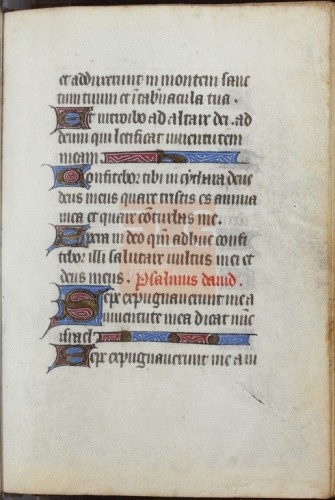 et adduxerunt in montem sanc
tum tuum et i tab̄nacula tua.
Et introibo ad altare dei. ad
deum qui letificat iuuentutem
meam.
Confitebor tibi in cythara deus
deus meus quare tristis es anima
mea et quare cōturbas me.
Spera in deo qm̄ adhuc confi
tebor illi salutare uultus mei et
deus meus. Psalmus dauid.
Sepe expugnauerunt me a
iuuentute mea dicat nūc
israel
Sepe expugnauerunt me a iu